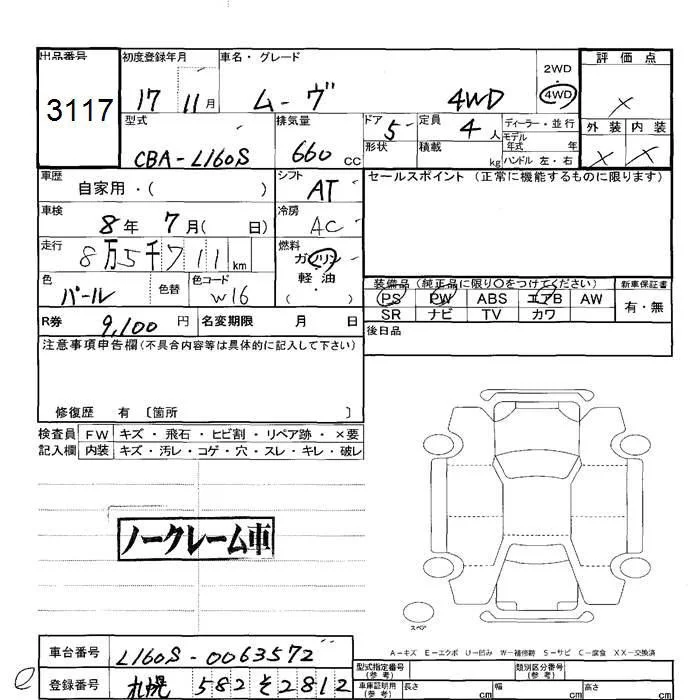 出品番号 初度登録年月 車名・グレード 評価点
3117 17 11月 ムーヴ 4WD 2WD・4WD ×
型式 排気量 ドア 定員 ディーラー・並行 外装 内装
CBA-L160S 660 CC 5 4人 モデル年式 年
形状 積載 kg ハンドル 左・右 × ×
車歴 自家用・( ) シフト AT セールスポイント(正常に機能するものに限ります)
車検 8年 7月( 日) 冷房 AC
走行 8万5千711km 燃料 ガソリン
軽・油
( )
色 パール 色替 色コード W16
装備品(純正品に限り〇をつけてください) 新車保証書
PS PW ABS エアB AW 有・無
SR ナビ TV カワ
R券 9,100円 名変期限 月 日 後日品
注意事項申告欄(不具合内容等は具体的に記入して下さい)
修復歴 有 〔箇所 〕
検査員 FW キズ・飛石・ヒビ割・リペア跡・×要
記入欄 内装 キズ・汚レ・コゲ・穴・スレ・キレ・破レ
ノークレーム車
スペア
A-キズ E-エクボ U-凹み W-補修跡 S-サビ C-腐食 XX-交換済
車台番号 L160S-0063572
型式指定番号(参考) 類別区分番号(参考)
登録番号 札幌 582 そ 2812
車庫証明用(参考) 長さ cm 幅 cm 高さ cm